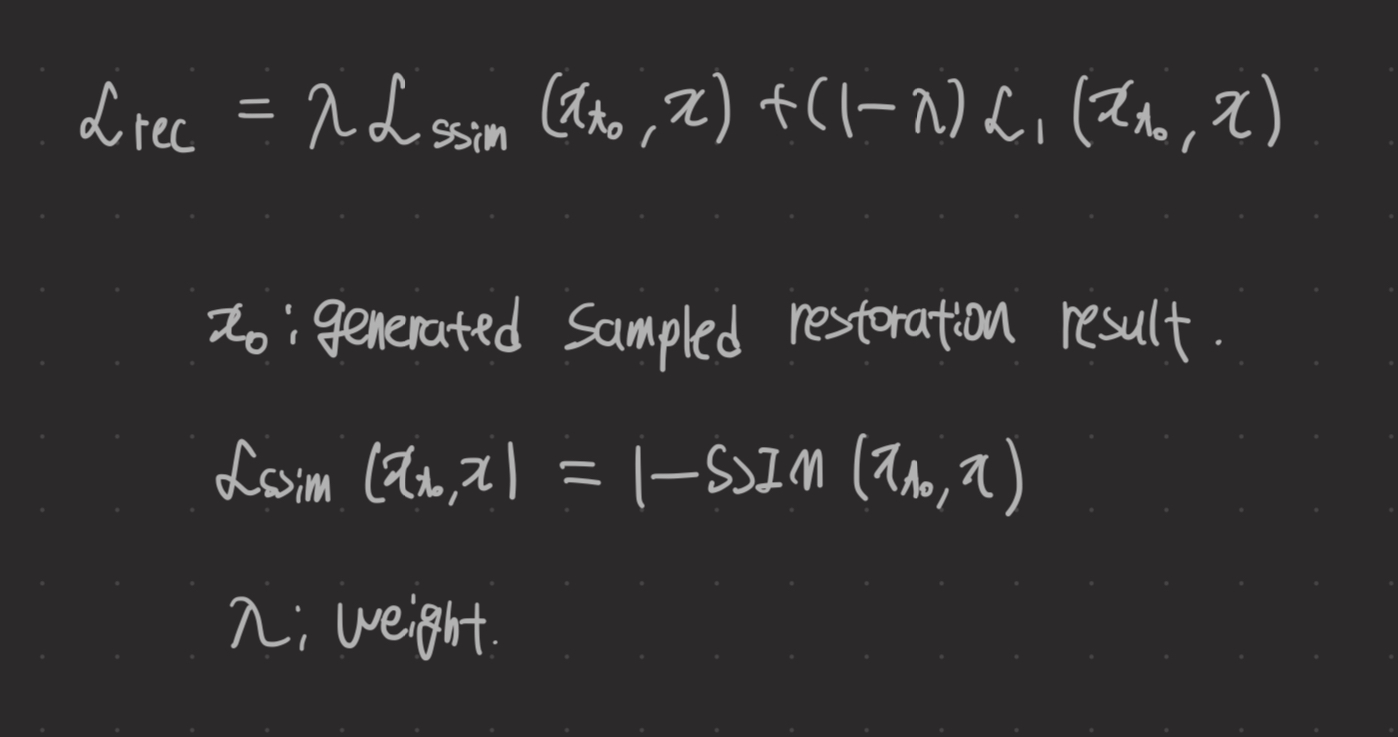 ℒrec = λℒssim (x_{t₀}, x) + (1-λ) ℒ₁ (x_{t₀}, x)
x₀ : generated sampled restoration result.
ℒssim (x_{t₀}, x) = 1-SSIM (x_{t₀}, x)
λ; weight.